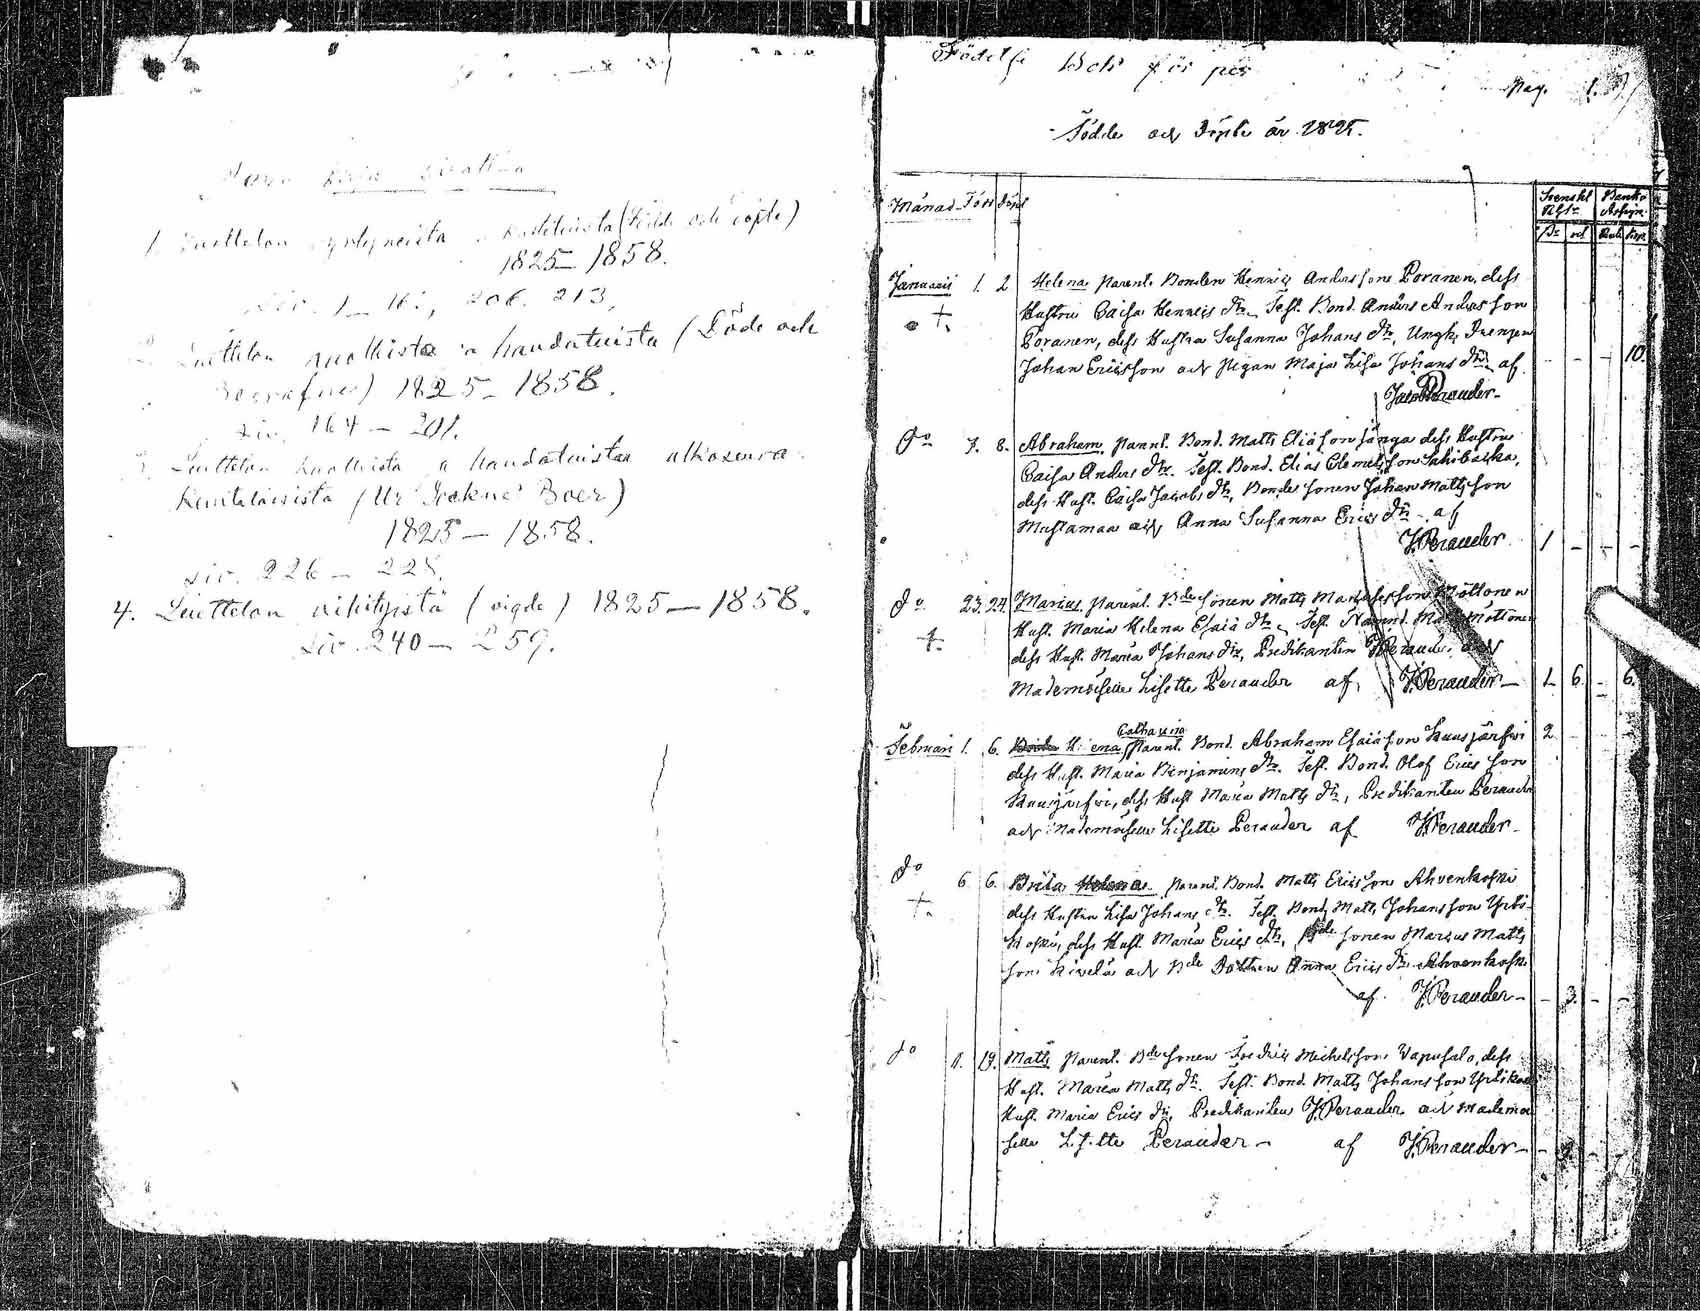 1. Luettelo syntyneistä ja kastetuista (Födde och döpte)
1825 – 1858.
siv. 1 – 161, 206. 213,
2. Luettelo kuolleista ja haudatuista (Döde och
Begrafne) 1825 – 1858.
siv. 164 – 201.
3. Luettelo kuolleista ja haudatuista
1825 – 1858.
siv. 226 – 228.
4. Luettelo vihityistä (vigde) 1825 – 1858.
siv. 240 – 259.
Födelse Bok för
pag. 1.
Födde och Döpte år 1825.
Månad Född Döpt
Svenskt Rgs Banko Assign.
Januarii 1. 2 Helena Parent. Bonden Henric Andersson Poranen, dess
Hustru Caisa Henrics dtr, Test. Bond. Anders Andersson
Poranen, dess Hustru Susanna Johans dtr, Ungk. Drengen
Johan Ericsson och Pigan Maja Lisa Johans dtr af 10.
Jacob Perander –
do 7. 8. Abraham, Parent. Bond. Matts Eliasson Långa dess Hustru
Caisa Anders dtr. Test. Bond. Elias Clemetsson
dess Hust. Caisa Jacobs dtr, Bonde sonen Johan Mattsson
Mustamaa och Anna Susanna Erics dtr – af
J. Perander 1 – – –
do 23. 24. Marcus, Parent. Bde sonen Matts Möttönen
Hust. Maria Helena Esaiæ dtr, Test. Nämnd. Möttönen
dess Hust. Maria Johans dtr, Predikanten J. Perander och
Mademoiselle Lisette Perander af J. Perander – 1. 6. – 6.
Catharina
Februari 1. 6. Parent. Bond. Abraham Esaiæson Kuusjärfwi 2
dess Hust. Maria Benjamins dtr. Test. Bond. Olof Ericsson
Kuusjärfwi, dess Hust Maria Matts dtr, Predikanten Perander
och Mademoiselle Lisette Perander af J. Perander –
do 6 6. Brita Helena Parent. Bond. Matts Ericsson Ahvenkoski
dess Hustru Lisa Johans dtr. Test. Bond. Matts Johansson Yrtti-
koski, dess Hust. Maria Erics dtr, Bde sonen Marcus Matts
son Kivelä och Bde Dottren Anna Erics dtr Ahvenkoski
af J. Perander – – 3. – –
do 11. 19. Matts Parent. Bde sonen Fredric Michelsson Vapusalo, dess
Hust. Maria Matts dtr. Test. Bond. Matts Johansson
Hust. Maria Erics dtr, Predikanten J. Perander och Mademoi
selle Lisette Perander – af J. Perander –